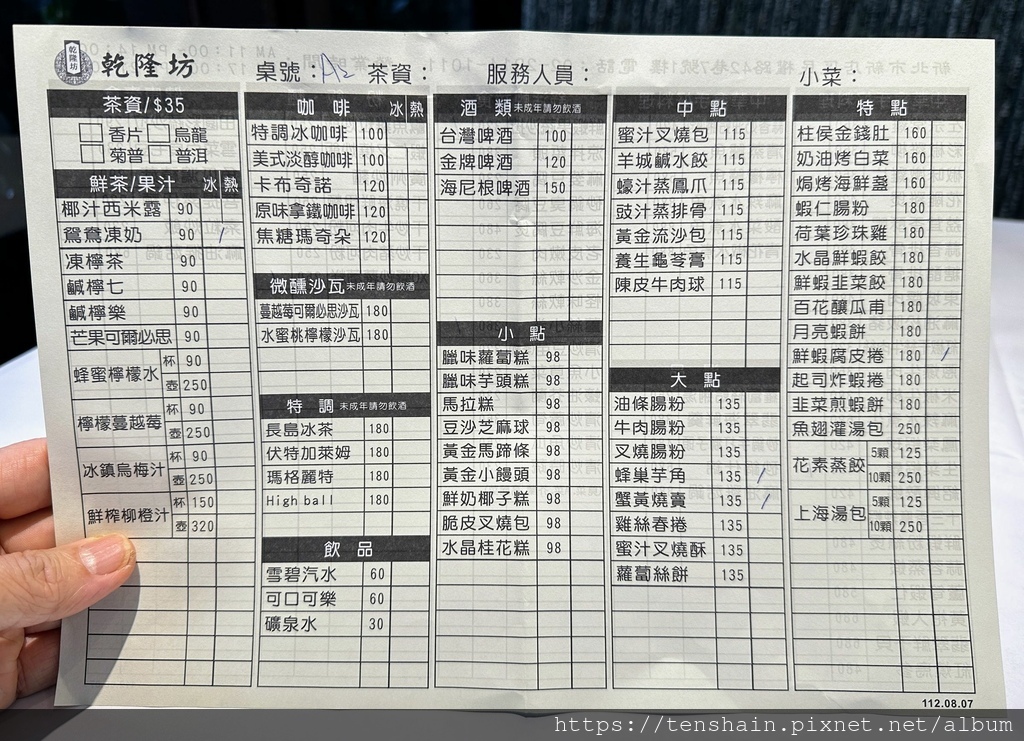 乾隆坊 桌號：A2 茶資： 服務人員： 小菜：
茶資/$35
香片 烏龍
菊普 普洱
鮮茶/果汁 冰 熱
椰汁西米露 90
鴛鴦凍奶 90
凍檸茶 90
鹹檸七 90
鹹檸樂 90
芒果可爾必思 90
蜂蜜檸檬水 杯 90
壺 250
檸檬蔓越莓 杯 90
壺 250
冰鎮烏梅汁 杯 90
壺 250
鮮榨柳橙汁 杯 150
壺 320
咖啡 冰 熱
特調冰咖啡 100
美式淡醇咖啡 100
卡布奇諾 120
原味拿鐵咖啡 120
焦糖瑪奇朵 120
微醺沙瓦 未成年請勿飲酒
蔓越莓可爾必思沙瓦 180
水蜜桃檸檬沙瓦 180
特調 未成年請勿飲酒
長島冰茶 180
伏特加萊姆 180
瑪格麗特 180
High ball 180
飲品
雪碧汽水 60
可口可樂 60
礦泉水 30
酒類 未成年請勿飲酒
台灣啤酒 100
金牌啤酒 120
海尼根啤酒 150
小點
臘味蘿蔔糕 98
臘味芋頭糕 98
馬拉糕 98
豆沙芝麻球 98
黃金馬蹄條 98
黃金小饅頭 98
鮮奶椰子糕 98
脆皮叉燒包 98
水晶桂花糕 98
中點
蜜汁叉燒包 115
羊城鹹水餃 115
蠔汁蒸鳳爪 115
豉汁蒸排骨 115
黃金流沙包 115
養生龜苓膏 115
陳皮牛肉球 115
大點
油條腸粉 135
牛肉腸粉 135
叉燒腸粉 135
蜂巢芋角 135
蟹黃燒賣 135
雞絲春捲 135
蜜汁叉燒酥 135
蘿蔔絲餅 135
特點
柱侯金錢肚 160
奶油烤白菜 160
焗烤海鮮盞 160
蝦仁腸粉 180
荷葉珍珠雞 180
水晶鮮蝦餃 180
鮮蝦韭菜餃 180
百花釀瓜甫 180
月亮蝦餅 180
鮮蝦腐皮捲 180
起司炸蝦捲 180
韭菜煎蝦餅 180
魚翅灌湯包 250
花素蒸餃 5顆 125
10顆 250
上海湯包 5顆 125
10顆 250
112.08.07
https://tenshain.pixnet.net/album